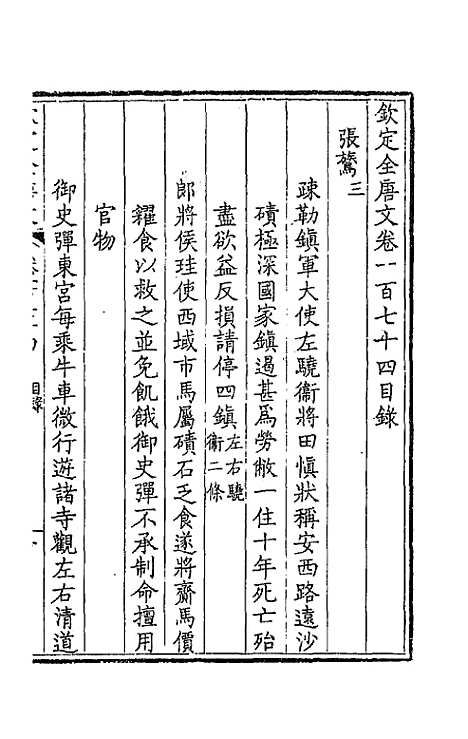 欽定全唐文卷一百七十四目錄
張鷟三
疎勒鎮軍大使左驍衞將田愼狀稱安西路遠沙
磧極深國家鎮遏甚爲勞敝一住十年死亡殆
盡欲益反損請停四鎮左右驍衞二條
郎將侯珪使西域市馬屬磧石乏食遂將齎馬價
糴食以救之並免飢餓御史彈不承制命擅用
官物
御史彈東宮每乘牛車微行遊諸寺觀左右清道
目錄